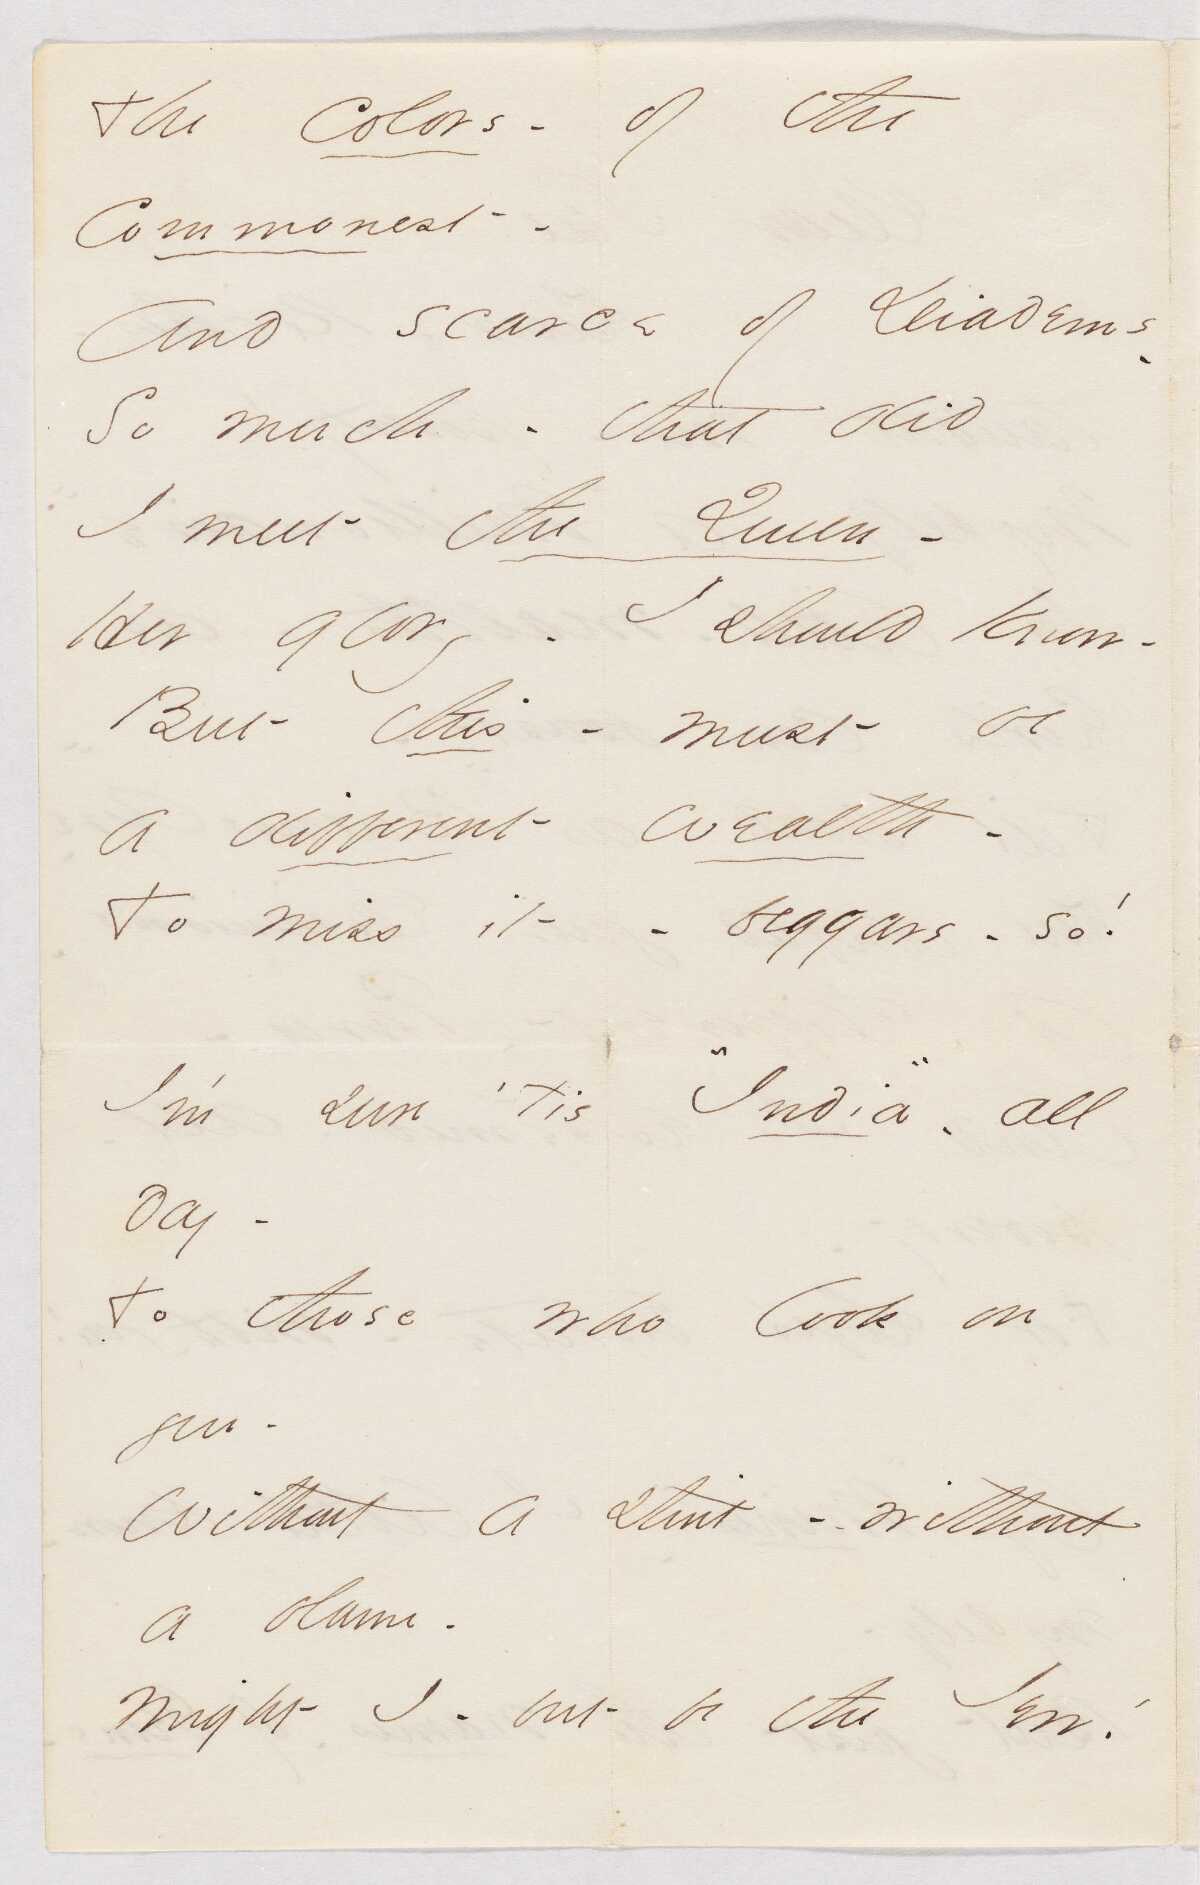 The Colors - of the
Commonest -
And scarce of Diadems -
So much - that did
I meet the Queen -
Her glory - I should know -
But this - must be
a different wealth -
To miss it - beggars - so!
I'm sure 'tis "India" - all
Day -
To those who look on
you -
Without a stint - without
a blame -
Might I - but be the Jew!